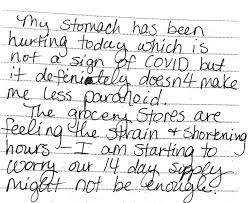 My stomach has been
hurting today which is
not a sign of COVID but
it definitely doesn't make
me less paranoid.
The grocery stores are
feeling the strain + shortening
hours - I am starting to
worry our 14 day supply
might not be enough.